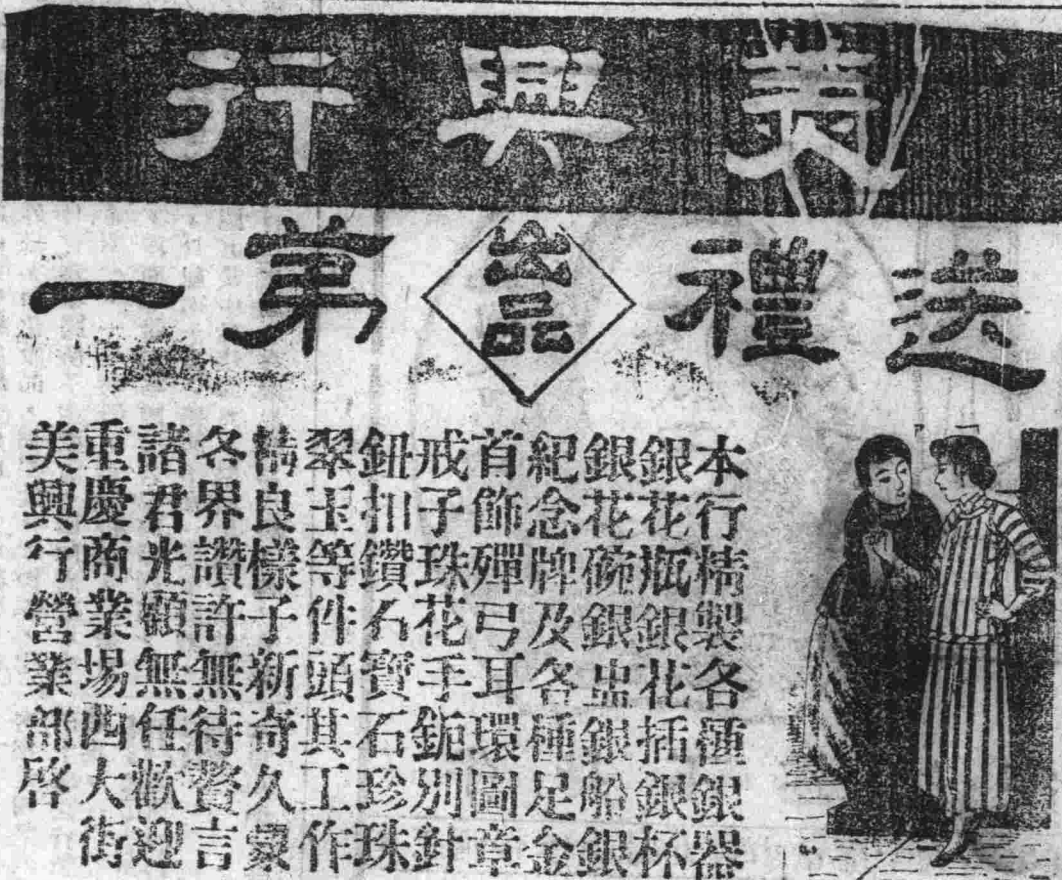 美興行
送禮出品第一
本行精製各種銀器
銀花瓶銀花插銀杯
銀花碗銀盅銀船銀
紀念牌及各種足金
首飾殫弓耳環圖章
戒子珠花手鈪別針
鈕扣鑽石寶石珍珠
翠玉等件頭其工作
精良樣子新奇久蒙
各界讚許無待贅言
諸君光顧無任歡迎
重慶商業場西大街
美興行營業部啓